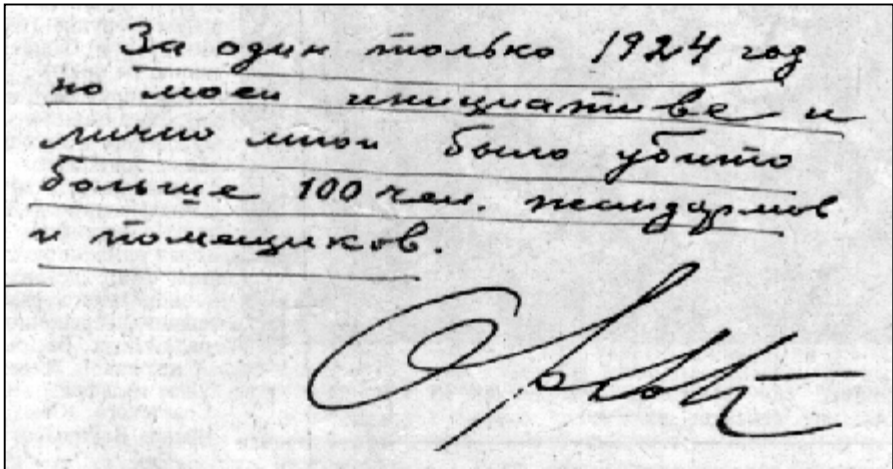 За один только 1924 год
по моей инициативе и
лично мной было убито
больше 100 чел. жандармов
и помещиков.